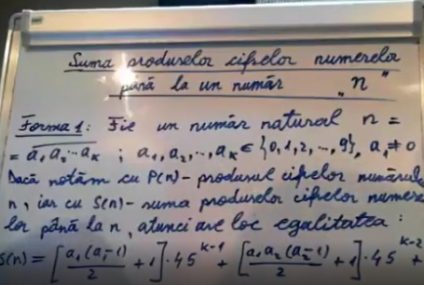 Suma produselor cifrelor numerelor
până la un număr „n”
Forma 1: Fie un număr natural n =
= a₁a₂...aₖ ; a₁, a₂, ..., aₖ ∈ {0,1,2, ..., 9}, a₁ ≠ 0
Dacă notăm cu P(n)- produsul cifrelor numărului
n, iar cu S(n)- suma produselor cifrelor numere
lor până la n, atunci are loc egalitatea:
S(n) = [a₁(a₁-1)/2 + 1]·45^(k-1) + [a₁a₂(a₂-1)/2 + 1]·45^(k-2) +